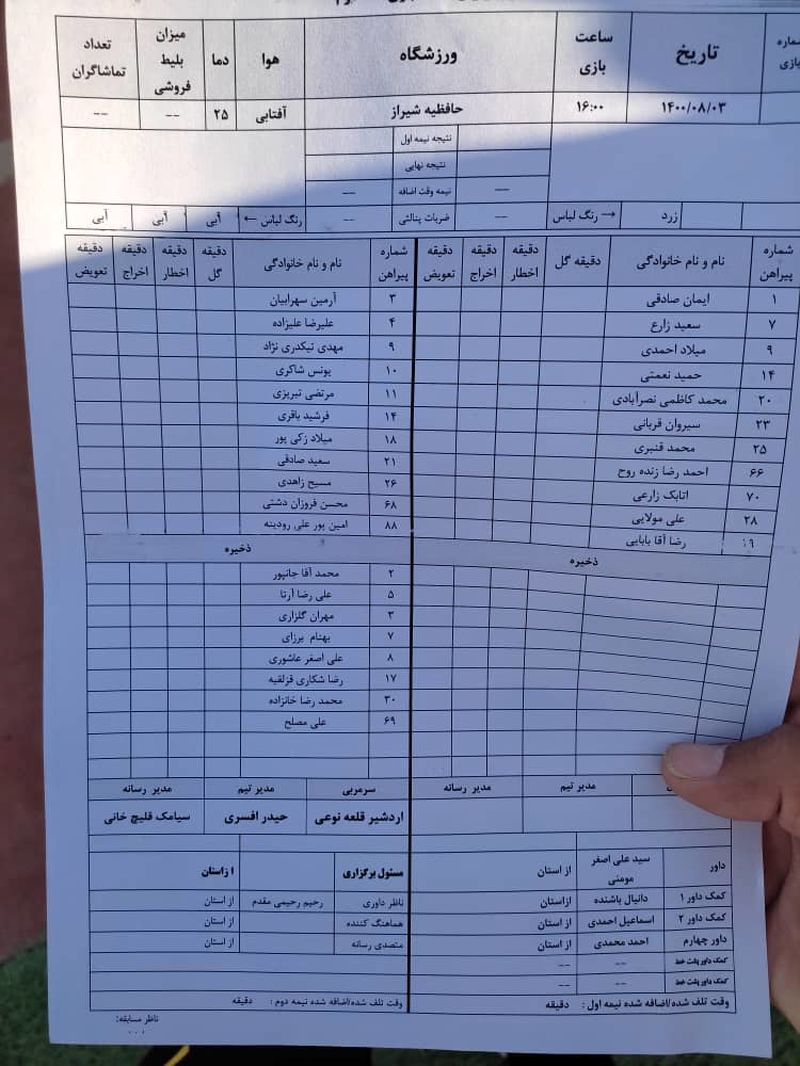 شماره بازی	تاریخ	ساعت بازی	ورزشگاه	هوا	دما	میزان بلیط فروشی	تعداد تماشاگران
۱۴۰۰/۰۸/۰۳	۱۶:۰۰	حافظیه شیراز	آفتابی	۲۵	--	--
نتیجه نیمه اول
نتیجه نهایی
--	نیمه وقت اضافه	--
زرد	→ رنگ لباس	--	ضربات پنالتی	--	رنگ لباس ←	آبی	آبی	آبی
شماره پیراهن	نام و نام خانوادگی	دقیقه گل	دقیقه اخطار	دقیقه اخراج	دقیقه تعویض	شماره پیراهن	نام و نام خانوادگی	دقیقه گل	دقیقه اخطار	دقیقه اخراج	دقیقه تعویض
۱	ایمان صادقی	۳	آرمین سهرابیان
۷	سعید زارع	۴	علیرضا علیزاده
۹	میلاد احمدی	۹	مهدی تیکدری نژاد
۱۴	حمید نعمتی	۱۰	یونس شاکری
۲۰	محمد کاظمی نصرآبادی	۱۱	مرتضی تبریزی
۲۳	سیروان قربانی	۱۴	فرشید باقری
۲۵	محمد قنبری	۱۸	میلاد زکی پور
۶۶	احمد رضا زنده روح	۲۱	سعید صادقی
۷۰	اتابک زارعی	۲۶	مسیح زاهدی
۲۸	علی مولایی	۶۸	محسن فروزان دشتی
۱۹	رضا آقا بابایی	۸۸	امین پور علی رودینه
ذخیره	ذخیره
۲	محمد آقا جانپور
۵	علی رضا آرتا
۳	مهران گلزاری
۷	بهنام برزای
۸	علی اصغر عاشوری
۱۷	رضا شکاری قزلقیه
۳۰	محمد رضا خانزاده
۶۹	علی مصلح
مدیر تیم	مدیر رسانه	سرمربی	مدیر تیم	مدیر رسانه
اردشیر قلعه نوعی	حیدر افسری	سیامک قلیچ خانی
داور	سید علی اصغر مومنی	از استان	مسئول برگزاری	ا زاستان
کمک داور ۱	دانیال باشنده	ازاستان	ناظر داوری	رحیم رحیمی مقدم	از استان
کمک داور ۲	اسماعیل احمدی	از استان	هماهنگ کننده	از استان
داور چهارم	احمد محمدی	از استان	متصدی رسانه	از استان
کمک داور پشت خط	--	--
کمک داور پشت خط	--	--
وقت تلف شده/اضافه شده نیمه اول :	دقیقه	وقت تلف شده/اضافه شده نیمه دوم :	دقیقه
ناظر مسابقه: